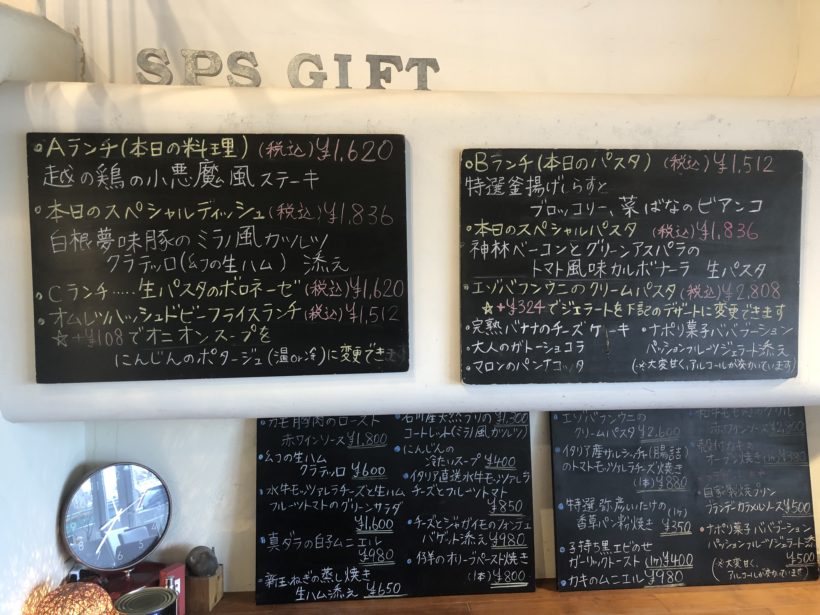 SPS GIFT
・Aランチ(本日の料理)(税込)¥1,620
越の鶏の小悪魔風ステーキ
・本日のスペシャルディッシュ(税込)¥1,836
白根夢味豚のミラノ風カツレツ
クラテッロ(幻の生ハム)添え
・Cランチ……生パスタのボロネーゼ(税込)¥1,620
・オムレツハッシュドビーフライスランチ(税込)¥1,512
☆+¥108でオニオンスープを
にんじんのポタージュ(温or冷)に変更でき
・Bランチ(本日のパスタ)(税込)¥1,512
特選釜揚げしらすと
ブロッコリー、菜ばなのビアンコ
・本日のスペシャルパスタ(税込)¥1,836
神林ベーコンとグリーンアスパラの
トマト風味カルボナーラ 生パスタ
・エゾバフンウニのクリームパスタ(税込)¥2,808
☆+¥324でジェラートを下記のデザートに変更できます
・完熟バナナのチーズケーキ
・大人のガトーショコラ
・マロンのパンナコッタ
・ナポリ菓子ババブーション
パッションフルーツジェラート添え
(※大変甘く、アルコールが効いています)
・カモ胸肉のロースト
赤ワインソース ¥1,800
・幻の生ハム
クラテッロ ¥600
・水牛モッツァレラチーズと生ハム
フルーツトマトのグリーンサラダ
¥1,600
・真ダラの白子ムニエル
¥980
・新玉ねぎの蒸し焼き
生ハム添え ¥650
・石川産天然ブリの ¥1,300
コートレット(ミラノ風カツレツ)
・にんじんの
冷たいスープ ¥400
・イタリア直送水牛モッツァレラ
チーズとフルーツトマト
¥850
・チーズとジャガイモのフォンデュ
バゲット添え ¥980
・仔羊のオリーブペースト焼き
(1本) ¥800
・エゾバフンウニの
クリームパスタ ¥2,600
・イタリア産サルシッチャ(腸詰)
のトマトモッツァレラチーズ焼き
(1本) ¥880
・特選弥彦しいたけの(1ケ)
香草パン粉焼き ¥350
・子持ち黒エビのせ
ガーリックトースト (1ケ) ¥400
・カキのムニエル ¥980
・殻付カキの
・自家製焼プリン
ブランデーカラメルソース ¥500
・ナポリ菓子ババブーション
パッションフルーツジェラート添
(※大変甘く、 ¥500
アルコールが効いています)